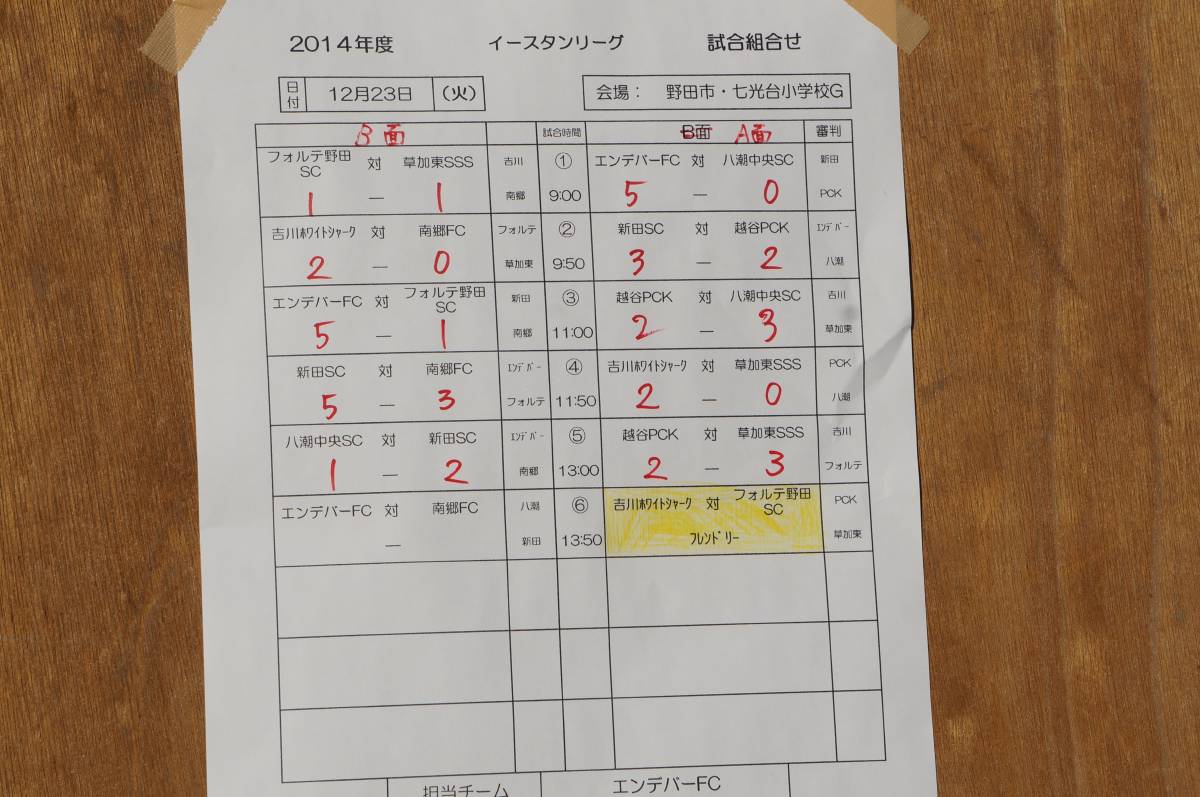 2014年度 イースタンリーグ 試合組合せ
日付 12月23日 (火) 会場： 野田市・七光台小学校G
B面 試合時間 B面 A面 審判
フォルテ野田SC 対 草加東SSS 吉川 ① エンデバーFC 対 八潮中央SC 新田
1 — 1 南郷 9:00 5 — 0 PCK
吉川ﾎﾜｲﾄｼｬｰｸ 対 南郷FC フォルテ ② 新田SC 対 越谷PCK ｴﾝﾃﾞﾊﾞｰ
2 — 0 草加東 9:50 3 — 2 八潮
エンデバーFC 対 フォルテ野田SC 新田 ③ 越谷PCK 対 八潮中央SC 吉川
5 — 1 南郷 11:00 2 — 3 草加東
新田SC 対 南郷FC ｴﾝﾃﾞﾊﾞｰ ④ 吉川ﾎﾜｲﾄｼｬｰｸ 対 草加東SSS PCK
5 — 3 フォルテ 11:50 2 — 0 八潮
八潮中央SC 対 新田SC ｴﾝﾃﾞﾊﾞｰ ⑤ 越谷PCK 対 草加東SSS 吉川
1 — 2 南郷 13:00 2 — 3 フォルテ
エンデバーFC 対 南郷FC 八潮 ⑥ 吉川ﾎﾜｲﾄｼｬｰｸ 対 フォルテ野田SC PCK
— 新田 13:50 ﾌﾚﾝﾄﾞﾘｰ 草加東
担当チーム エンデバーFC